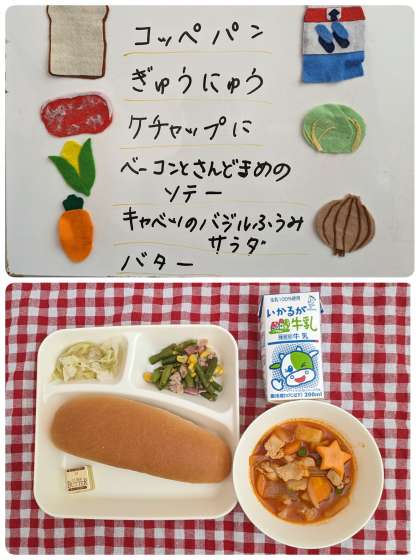 コッペパン
ぎゅうにゅう
ケチャップに
ベーコンとさんどまめの
ソテー
キャベツのバジルふうみ
サラダ
バター
生乳100%使用
いかるが
牛乳
種類別 牛乳
200ml
BUTTER